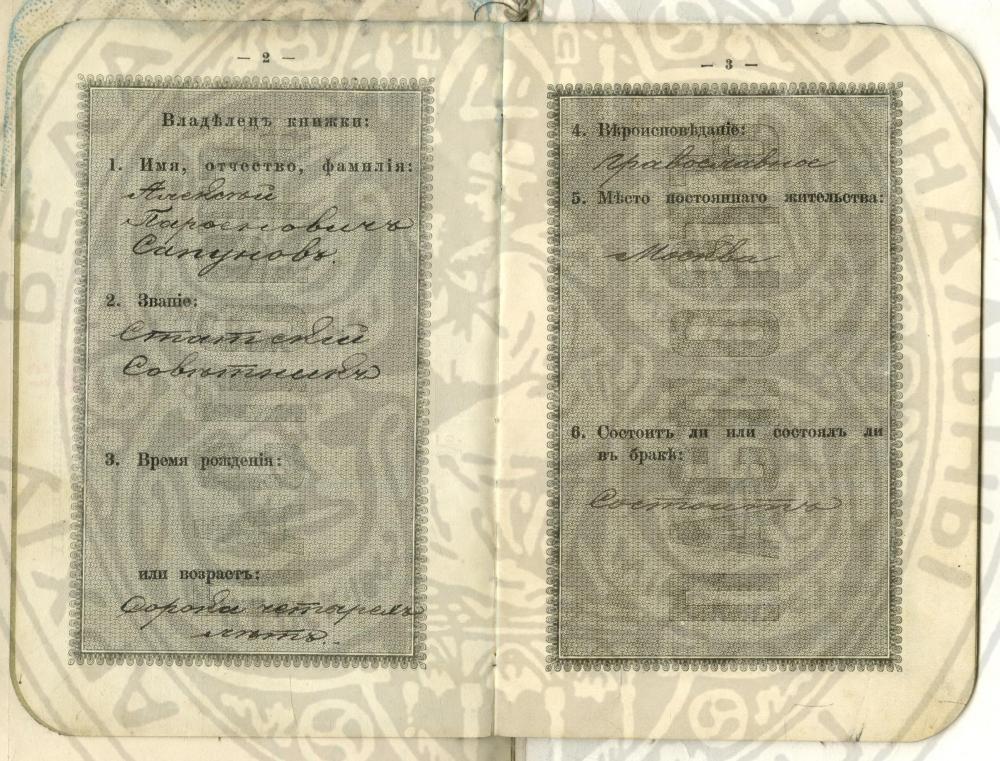 — 2 —
Владѣлецъ книжки:
1. Имя, отчество, фамилія:
Алексѣй
Парѳеновичъ
Сапуновъ.
2. Званіе:
Статскій
Совѣтникъ
3. Время рожденія:
или возрастъ:
Сорока четырехъ
лѣтъ.
— 3 —
4. Вѣроисповѣданіе:
Православное
5. Мѣсто постояннаго жительства:
Москва
6. Состоитъ ли или состоялъ ли
въ бракѣ:
Состоитъ